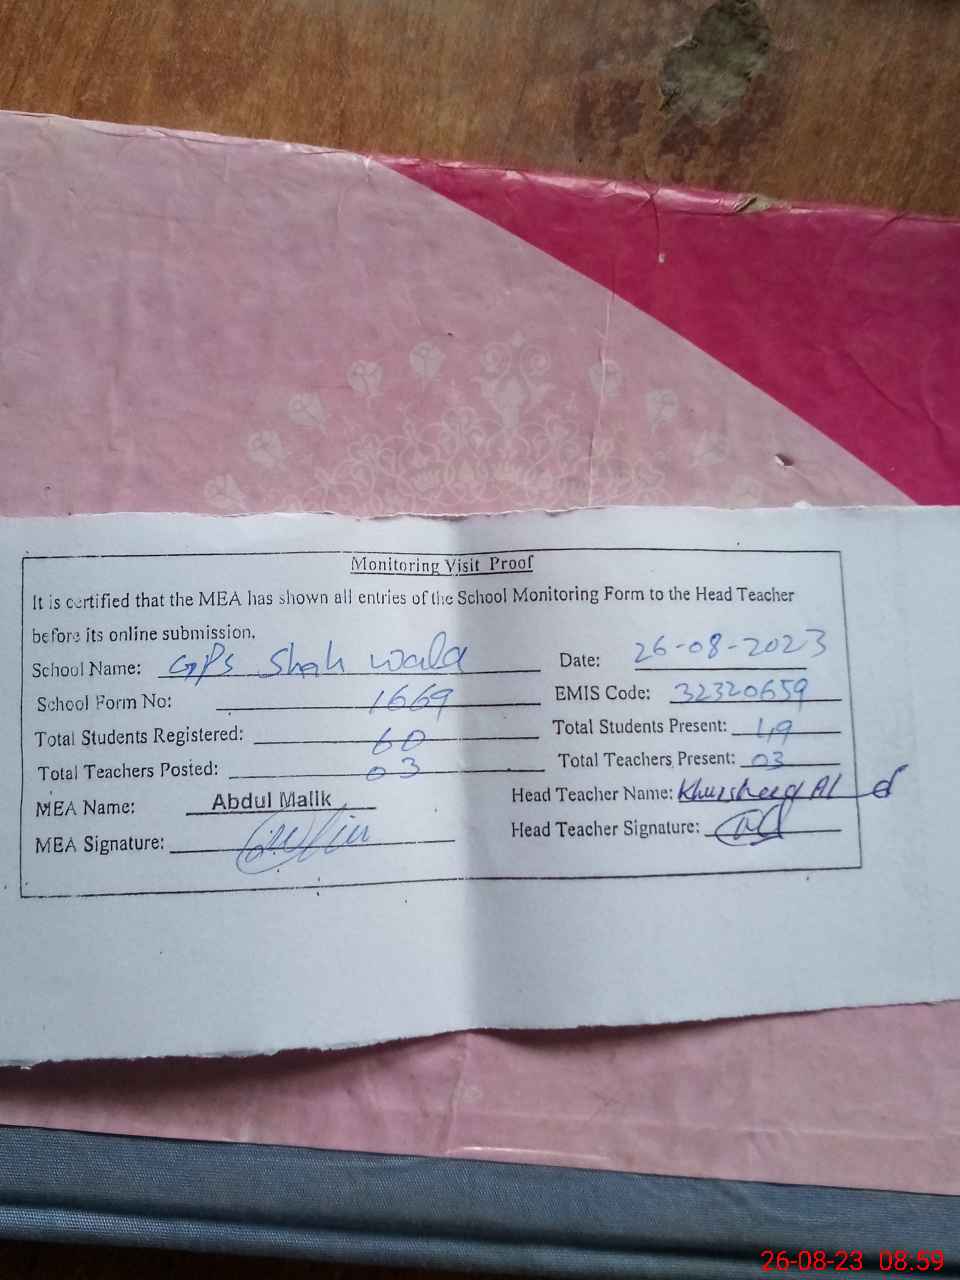 Monitoring Visit Proof
It is certified that the MEA has shown all entries of the School Monitoring Form to the Head Teacher
before its online submission.
School Name: GPS Shah wala Date: 26-08-2023
School Form No: 1669 EMIS Code: 32320659
Total Students Registered: 60 Total Students Present: 49
Total Teachers Posted: 03 Total Teachers Present: 03
MEA Name: Abdul Malik Head Teacher Name: Khursheed
MEA Signature: Head Teacher Signature:
26-08-23 08:59